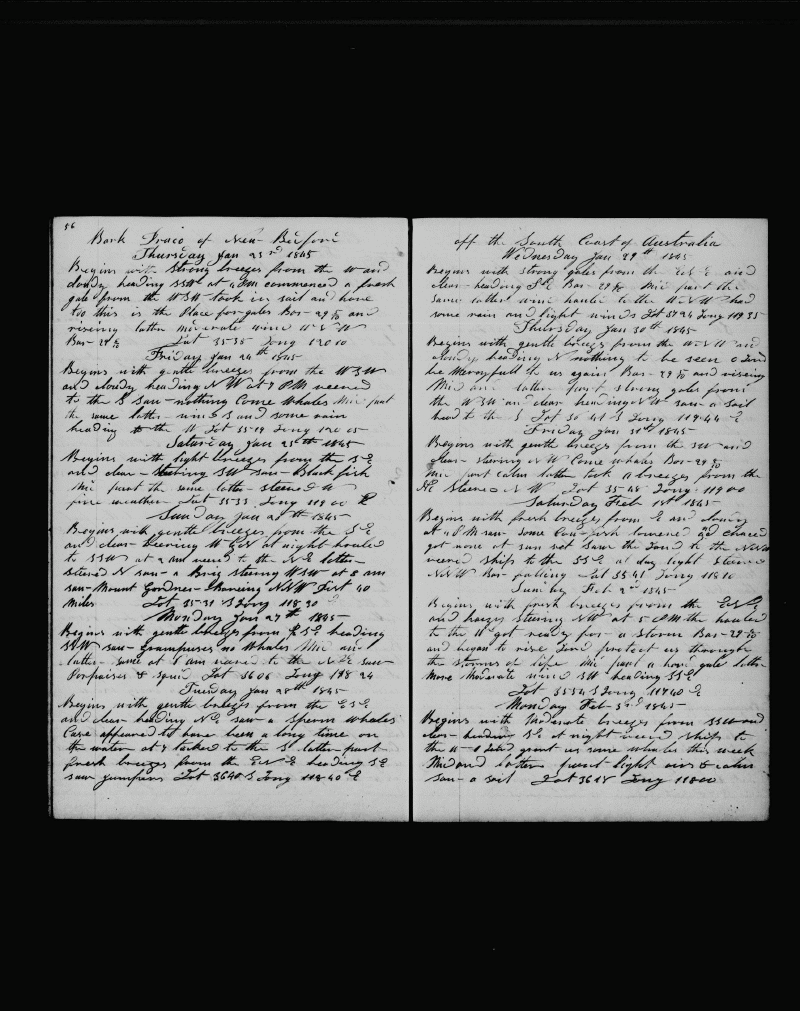 56
Bark Draco of New Bedford
Thursday Jan 23rd 1845
Begins with strong breezes from the W and
cloudy heading SSW at 4 PM commenced a fresh
gale from the WSW took in sail and hove
too this is the Place for gales Bar 29 and
riseing latter moderate wind
Bar 29 Lat 35-35 Long 120 10
Friday Jan 24th 1845
Begins with gentle breezes from the WSW
and cloudy heading NW at 7 PM veered
to the S saw nothing Come Whales Mid part
the same latter wind S and some rain
heading to the W Lat 35-19 Long 120 05
Saturday Jan 25th 1845
Begins with light breezes from the SE
and clear Steering SW saw Black fish
Mid part the same latter steered W
fine weather Lat 35-33 Long 119 00 E
Sunday Jan 26th 1845
Begins with gentle breezes from the SE
and clear steering W at night hauled
to SSW at 2 am veered to the NE latter
Steered N saw a Brig steering WSW at 8 am
saw Mount Gardner bearing NNW Dist 40
Miles Lat 35-31 S Long 118 30
Monday Jan 27th 1845
Begins with gentle breezes from ESE heading
SSW saw Grampuses no Whales Mid and
latter same at 8 am veered to the NNE saw
Porpoises & Squid Lat 36 06 Long 118 24
Tuesday Jan 28th 1845
Begins with gentle breezes from the ESE
and clear heading NE saw a Sperm Whales
Case appeared to have been a long time on
the water at 7 tacked to the S latter part
fresh breezes from the ENE heading SE
saw jumpers Lat 36 40 S Long 118 40 E
off the South Coast of Australia
Wednesday Jan 29th 1845
Begins with strong gales from the ENE and
clear heading SE Bar 29 Mid part the
same latter wind hauled to the WNW had
some rain and light winds Lat 37 24 Long 119 35
Thursday Jan 30th 1845
Begins with gentle breezes from the WNW and
cloudy heading N nothing to be seen O Lord
be Mercyfull to us again Bar 29 and riseing
Mid and latter part strong gales from
the WSW and clear heading NW saw a Sail
head to the S Lat 36 41 S Long 119-44 E
Friday Jan 31st 1845
Begins with gentle breezes from the SW and
clear steering NW Come whales Bar 29
Mid part calm latter took a breeze from the
NE Steered NW Lat 35-48 Long 119 00
Saturday Feb 1st 1845
Begins with fresh breezes from E and cloudy
at 4 PM saw some Cow-fish lowered and chaced
got none at sun set Saw the Land to the NNW
veered ships to the SSE at day light Steered
NNW Bar falling Lat 35 41 Long 118 10
Sunday Feb 2nd 1845
Begins with fresh breezes from the ENE
and hazey steering NW at 5 PM the hauled
to the W got ready for a Storm Bar 29
and began to rise Lord protect us through
the storms of life Mid part a hard gale latter
More Moderate wind SW heading SSE
Lat 35 54 S Long 117 40 E
Monday Feb 3rd 1845
Begins with Moderate breezes from SSW and
clear heading SE at night veered ships to
the W O Lord grant us some whales this week
Mid and latter part light airs & calms
saw a sail Lat 36 18 Long 118 00